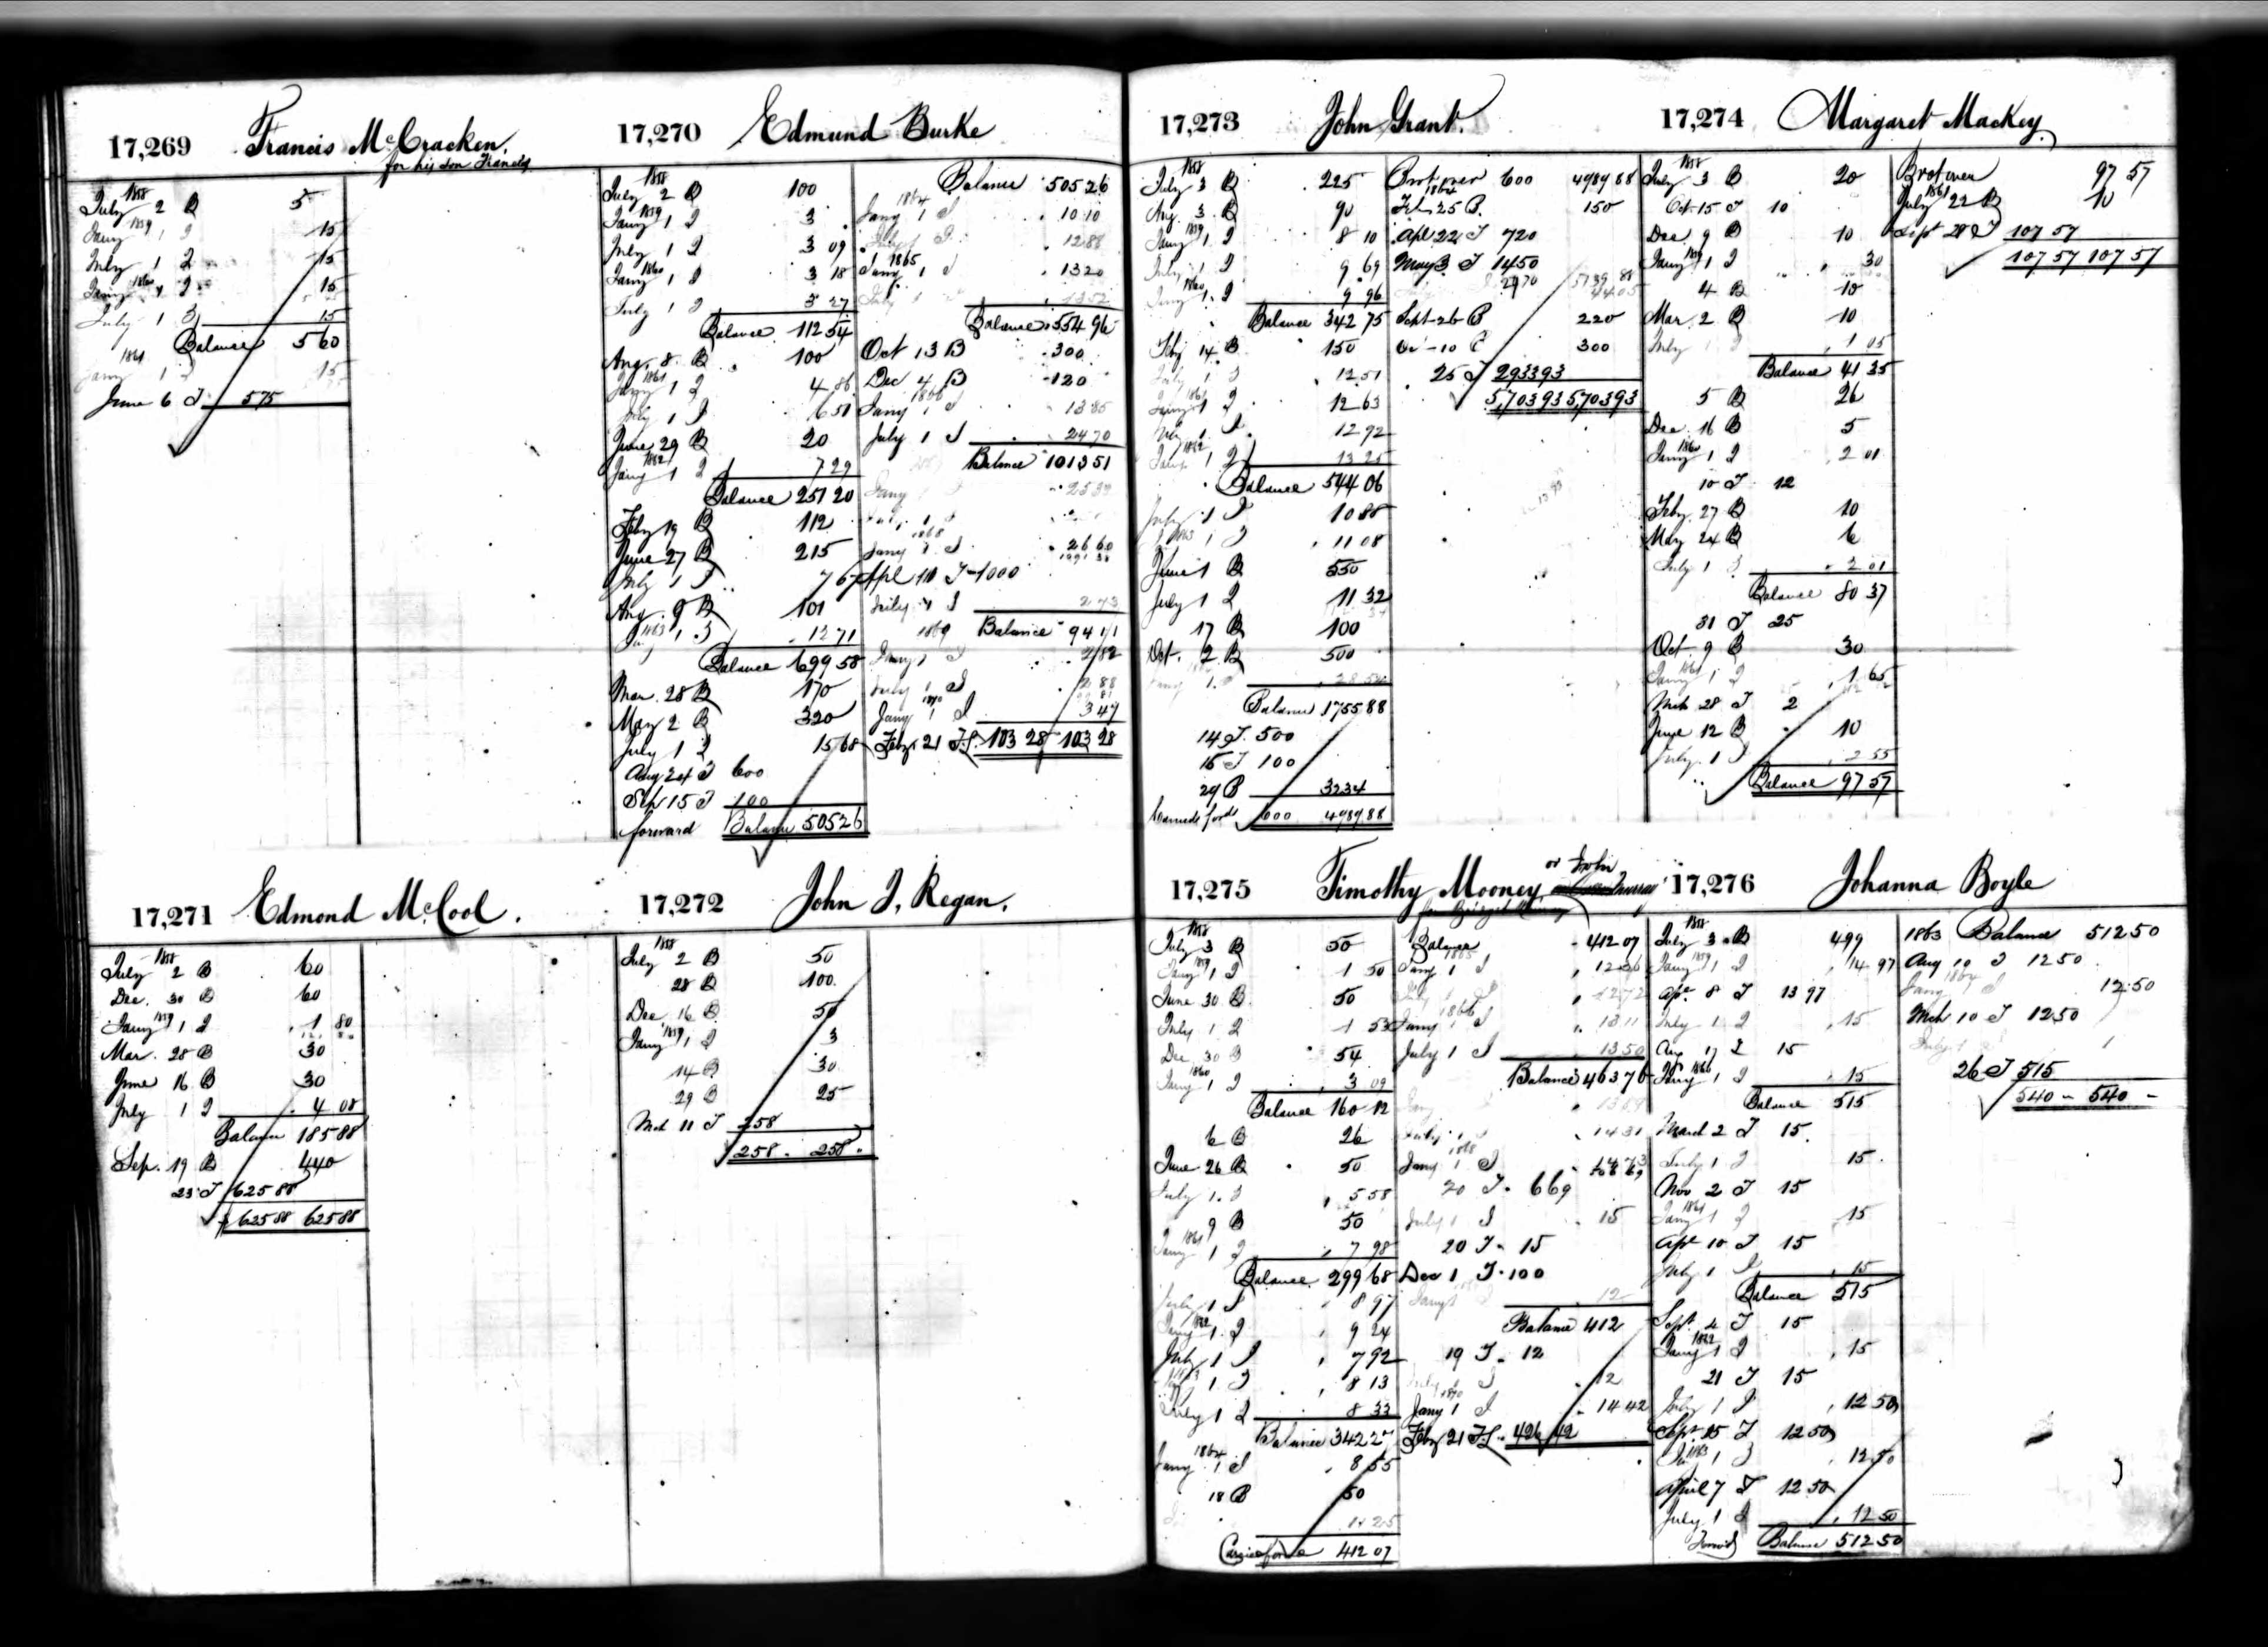 17,269 Francis McCracken.
for his son Francis
1858
July 2 B 5
1859
Jany 1 I 15
July 1 I 15
1860
Jany 1 I 15
July 1 I 15
Balance 5 60
1861
Jany 1 I 15
June 6 T 5 75
17,270 Edmund Burke
1858
July 2 B 100
1859
Jany 1 I 3
July 1 I 3 09
1860
Jany 1 I 3 18
July 1 I 3 27
Balance 112 54
Aug. 8 B 100
1861
Jany 1 I 4 86
July 1 I 6 51
June 29 B 20
1862
Jany 1 I 7 29
Balance 251 20
Feby 19 B 112
June 27 B 215
July 1 I 7 67
Aug. 9 B 101
1863
1 I 12 71
Balance 699 58
Mar. 28 B 170
May 2 B 320
July 1 I 15 68
Aug 24 T 600
Sep 15 T 100
forward Balance 505 26
Balance 505 26
1864
Jany 1 I 10 10
July 1 I 12 88
1865
Jany 1 I 13 20
July 1 I 13 52
Balance 554 96
Oct 13 B 300
Dec 4 B 120
1866
Jany 1 I 13 85
July 1 I 24 70
Balance 1013 51
Jany I
1 I
1868
Jany 1 I 26 60
Apl 10 T 1000
July 1 I 2 73
Balance 94 11
1869
Jany 1 I 2 82
July 1 I 2 88
1870
Jany 1 I 3 47
Feby 21 T.S. 103 28 103 28
17,271 Edmond McCool.
1858
July 2 B 60
Dec. 30 B 60
1859
Jany 1 I 1 80
Mar. 28 B 30
June 16 B 30
July 1 I 4 08
Balance 185 88
Sep. 19 B 440
23 T 625 88
625 88 625 88
17,272 John J. Regan.
1858
July 2 B 50
28 B 100
Dec 16 B 50
1859
Jany 1 I 3
14 B 30
29 B 25
Mch 11 T 258
258 258
17,273 John Grant.
1858
July 3 B 225
Aug. 3 B 90
1859
Jany 1 I 8 10
July 1 I 9 69
1860
Jany 1 I 9 96
Balance 342 75
Feby 14 B 150
July 1 I 12 51
1861
Jany 1 I 12 63
July 1 I 12 92
1862
Jany 1 I 13 25
Balance 544 06
July 1 I 10 88
1863
1 I 11 08
June 1 B 550
July 1 I 11 32
17 B 100
Oct. 2 B 500
Jany 1
Balance 1755 88
14 T 500
15 T 100
29 B 3234
Carried ford 600 4989 88
Brot over 600 4989 88
1864
Feb 25 B. 150
Apl 22 T 720
May 3 T 1450
2770 5139 88
44 05
Sept 26 B 220
Oct 10 B 300
25 T 2933 93
5,703 93 5703 93
17,274 Margaret Mackey.
1858
July 3 B 20
Oct 15 T 10
Dec 9 B 10
1859
Jany 1 I 30
4 B 10
Mar. 2 B 10
July 1 I 1 05
Balance 41 35
5 B 26
Dec. 16 B 5
1860
Jany 1 I 2 01
10 T 12
Feby. 27 B 10
May 24 B 6
July 1 I 2 01
Balance 80 37
31 T 25
Oct. 9 B 30
1861
Jany 1 I 1 65
Mch 28 T 2
June 12 B 10
July 1 I 2 55
Balance 97 57
Brot over 97 57
1861
July 22 B 10
Sept 28 T 107 57
107 57 107 57
17,275 Timothy Mooney or John
1858
July 3 B 50
1859
Jany 1 I 1 50
June 30 B 50
July 1 I 1 53
Dec 30 B 54
1860
Jany 1 I 3 09
Balance 160 12
6 B 26
June 26 B 50
July 1 I 5 58
9 B 50
1861
Jany 1 I 7 98
Balance 299 68
July 1 I 8 97
1862
Jany 1 I 9 24
July 1 I 7 92
1863
1 I 8 13
July 1 I 8 33
Balance 342 27
1864
Jany 1 I 8 55
18 B 50
11 25
Carried forw 412 07
Balance 412 07
1865
Jany 1 I 12 36
July 1 I 12 72
1866
Jany 1 I 13 11
July 1 I 13 50
Balance 463 76
Jany
July 1 I 14 31
1868
Jany 1 I 14 73
20 T 669
July 1 I 15
20 T 15
Dec 1 T 100
Jany 1 12
Balance 412
19 T 12
July 1 I 12
1870
Jany 1 I 14 42
Feby 21 T.S. 426 42
17,276 Johanna Boyle
1858
July 3 B 499
1859
Jany 1 I 14 97
Apl. 8 T 13 97
July 1 I 15
Aug 17 T 15
1860
Jany 1 I 15
Balance 515
March 2 T 15
July 1 I 15
Nov 2 T 15
1861
Jany 1 I 15
Apl 10 T 15
July 1 I 15
Balance 515
Sept. 4 T 15
1862
Jany 1 I 15
21 T 15
July 1 I 12 50
Sept. 15 T 12 50
1863
1 I 12 50
April 7 T 12 50
July 1 I 12 50
Forwd Balance 512 50
1863 Balance 512 50
Aug 10 T 12 50
1864
Jany I 12 50
Mch 10 T 12 50
July 1
26 T 515
540 – 540 –